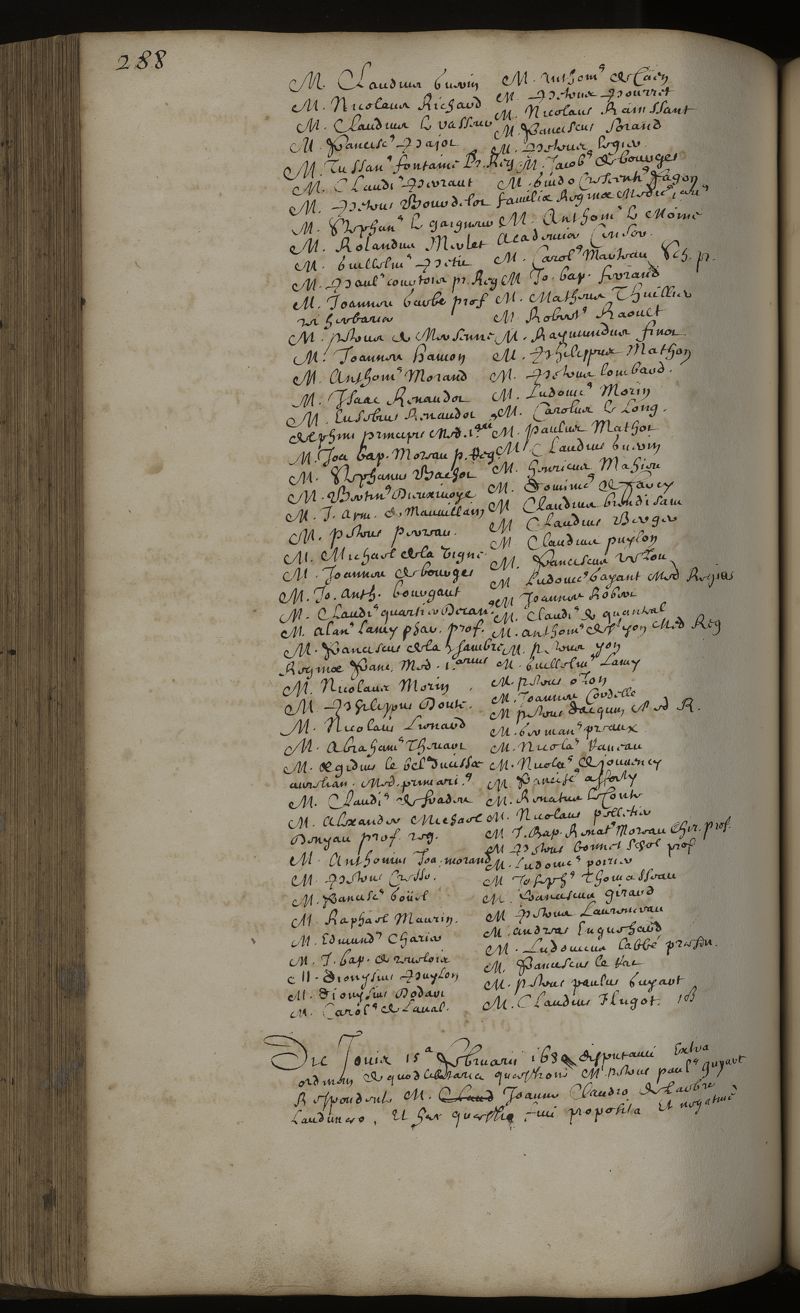 288
M. Claudius Guerin
M. Nicolaus Richard
M. Claudius le vasseur
M. Franciscus Pajot
M. Tussan9 fontaine Pr. Reg
M. Claudi9 Perraut
M. Petrus Bourdelot
M. Stephan9 le gaigneur
M. Rolandus Merlet
M. Guillelm9 Petit
M. Paul9 courtois pr. Reg
M. Joannes barbe prof
rei herbariæ
M. petrus de Mersenne
M. Joannes hamon
M. Anthoni9 Morand
M. Isaac Renaudot
M. Eusebius Renaudot
delphini principis Med. 1
M. Joa bap. Moreau p. Reg
M. Stephanus Bachot
M. Bertin9 Dieuxivoye
M. J. Arm. de Mauvillain
M. petrus perreau.
M. Michael de la Vigne
M. Joannes de bourges
M. Jo. Anth. bourgaut
M. Claudi9 quartier Decan9
M. alan9 lamy phar. prof.
M. Franciscus de la Chambre
Reginæ Franc. Med. 1.arius
M. Nicolaus Morin
M. Philippus Doute.
M. Nicolaus Lienard
M. Abraham9 Thevart
M. Ægidius le bel ducissæ
aurelian. Med. primari9
M. Claudi9 de frades
M. Alexander Michael
Denyau prof. reg.
M. Anthonius Joa. morand
M. Petrus Cresse.
M. Francisc9 boüel
M. Raphael Maurin.
M. Edmund9 Charier
M. J. bap. de rustoix
M. Dionysius Puylon
M. Dionysius Dodart
M. Carol9 de Laval.
M. Anthoni9 de Caen
M. Petrus Pourret
M. Nicolaus Rainssant
M. Franciscus Lorand
M. Petrus legier
M. Jacob9 de bourges
M. Guido Crescenti9 Fagon
familiæ Reginæ Medic9 1 ari9
M. Anthoni9 le Moine
Academiæ Censor.
M. Carol9 Marteau Sch. pr.
M. Jo. bap. ferrand
M. Mathæus Thuillier
M. Robert9 Raoult
M. Raymundus finot
M. Philippus Mathon
M. Petrus lombard.
M. Ludovic9 Morin
M. Carolus le Long.
M. Paulus Mathot
M. Claudius Guerin
M. henricus Mahieu
M. Dominic9 de farcy
M. Claudius brendisain
M. Claudius Berger
M. Claudius puylon
M. Franciscus
M. Ludovic9 gayant Med Regius
M. Joannes Robert
M. Claudi9 de quanteal
M. anthoni9 de St yon Med Reg
M. petrus yon
M. Guillelm9 Lamy
M. petrus ozon
M. Joannes Cordelle
M. petrus dacquin Med R.
M. German9 preaux
M. Nicola9 Vaneau
M. Nicola9 de Jouvency
M. Francisc9 afforty
M. Renatus le conte
M. Nicolaus pelletier
M. J. Bap. Renat9 Moreau Chir. prof.
M. Petrus bonnet Schol prof
M. Ludovic9 poirier
M. Joseph9 Thomasseau
M. Franciscus giraud
M. Petrus Laurenceau
M. andreas Enguehard
M. Ludovicus labbé
M. Franciscus le rat
M. petrus paulus Guyart
M. Claudius Flugot. 103
Die Jovis 15a Februarii 1680 disputavit Extra
ordinem de quodlibetaria questione M. petrus paul9 guyart
Respondente M. Claud Joanne Claudio de
Laudunæo, Et hæc questio fuit proposita Et negative